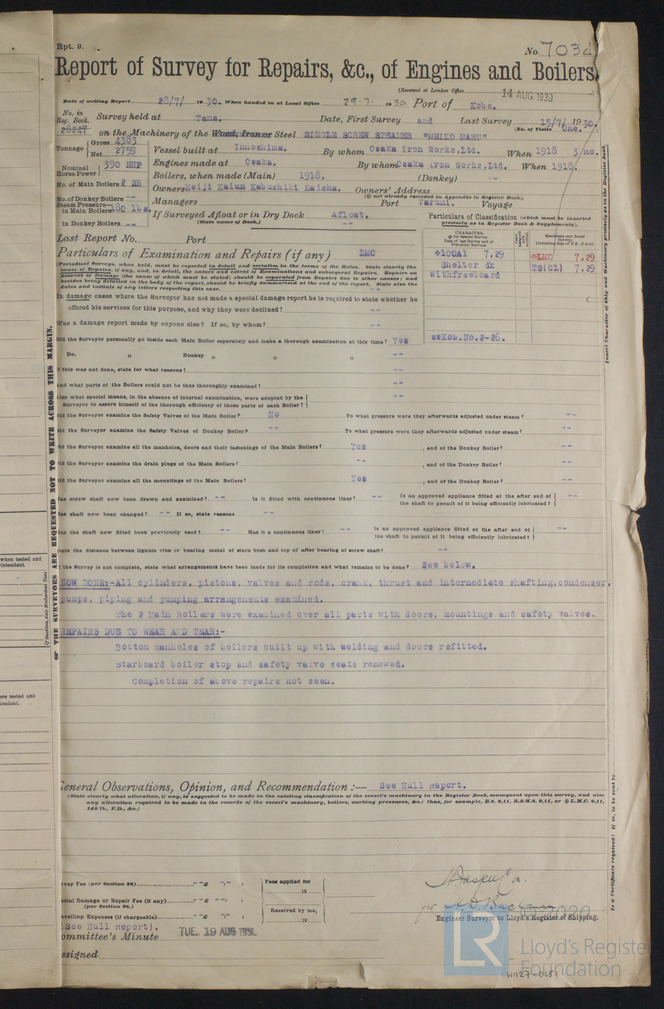 Rpt. 9.
No. 7034
Report of Survey for Repairs, &c., of Engines and Boilers.
(Received at London Office 14 AUG 1930
Date of writing Report 28/7/ 1930. When handed in at Local Office 29.7. 1930 Port of Kobe.
No. in Reg. Book. Survey held at Tama. Date, First Survey and Last Survey 15/7/ 1930.
(No. of Visits One.
on the Machinery of the Wood, Iron or Steel SINGLE SCREW STEAMER "MEIKO MARU"
Tonnage Gross 4383 Net 2759
Vessel built at Innoshima. By whom Osaka Iron Works, Ltd. When 1918 3/mo.
Nominal Horse Power 390 NHP
Engines made at Osaka. By whom Osaka Iron Works, Ltd. When 1918.
No. of Main Boilers 2 SB
Boilers, when made (Main) 1918. (Donkey) --
No. of Donkey Boilers --
Owners Meiji Kaiun Kabushiki Kaisha. Owners' Address
(If not already recorded in Appendix to Register Book).
Steam Pressure in Main Boilers 180 lbs.
Managers Port Tarumi. Voyage
in Donkey Boilers --
If Surveyed Afloat or in Dry Dock Afloat.
(State name of Dock.)
Particulars of Classification (which must be inserted precisely as in Register Book & Supplements).
Last Report No. Port
Particulars of Examination and Repairs (if any) LMC
+100A1 7,29
Shelter dk
Withfreeboard
+LMC 7,29
TS(CL) 7,29
ssKob.No.2-26.
In damage cases where the Surveyor has not made a special damage report he is required to state whether he
offered his services for this purpose, and why they were declined? --
Was a damage report made by anyone else? If so, by whom? --
Did the Surveyor personally go inside each Main Boiler separately and make a thorough examination at this time? Yes
Do. " Donkey " " --
If this was not done, state for what reasons? --
And what parts of the Boilers could not be thus thoroughly examined? --
Also what special means, in the absence of internal examination, were adopted by the
Surveyor to assure himself of the thorough efficiency of those parts of each Boiler? --
Did the Surveyor examine the Safety Valves of the Main Boiler? No To what pressure were they afterwards adjusted under steam? --
Did the Surveyor examine the Safety Valves of Donkey Boiler? -- To what pressure were they afterwards adjusted under steam? --
Did the Surveyor examine all the manholes, doors and their fastenings of the Main Boilers? Yes , and of the Donkey Boiler? --
Did the Surveyor examine the drain plugs of the Main Boilers? -- , and of the Donkey Boiler? --
Did the Surveyor examine all the mountings of the Main Boilers? Yes , and of the Donkey Boiler? --
Has screw shaft now been drawn and examined? -- Is it fitted with continuous liner? -- Is an approved appliance fitted at the after end of the shaft to permit of it being efficiently lubricated? --
Has shaft now been changed? -- If so, state reasons --
Has the shaft now fitted been previously used? -- Has it a continuous liner? -- Is an approved appliance fitted at the after end of the shaft to permit of it being efficiently lubricated? --
State the distance between lignum vitæ or bearing metal of stern bush and top of after bearing of screw shaft? --
If the Survey is not complete, state what arrangements have been made for its completion and what remains to be done? See below.
NOW DONE:-All cylinders, pistons, valves and rods, crank, thrust and intermediate shafting, condenser,
pumps, piping and pumping arrangements examined.
The 2 Main Boilers were examined over all parts with doors, mountings and safety valves.
REPAIRS DUE TO WEAR AND TEAR:-
Bottom manholes of boilers built up with welding and doors refitted.
Starboard boiler stop and safety valve seats renewed.
Completion of above repairs not seen.
General Observations, Opinion, and Recommendation:— See Hull Report.
(State clearly what alteration, if any, is suggested to be made in the existing classification of the vessel's machinery in the Register Book, consequent upon this survey, and also
any alteration required to be made in the records of the vessel's machinery, boilers, working pressures, &c.)
Survey Fee (per Section 29) --£ -- :
Fees applied for
19
Special Damage or Repair Fee (if any) --£ -- :
(per Section 29.)
Received by me,
19
Travelling Expenses (if chargeable) --£ -- :
(See Hull Report).
Engineer Surveyor to Lloyd's Register of Shipping.
Committee's Minute TUE. 19 AUG 1930
Assigned
THE SURVEYORS ARE REQUESTED NOT TO WRITE ACROSS THIS MARGIN.
LR
Lloyd's Register
Foundation
W1127-0051